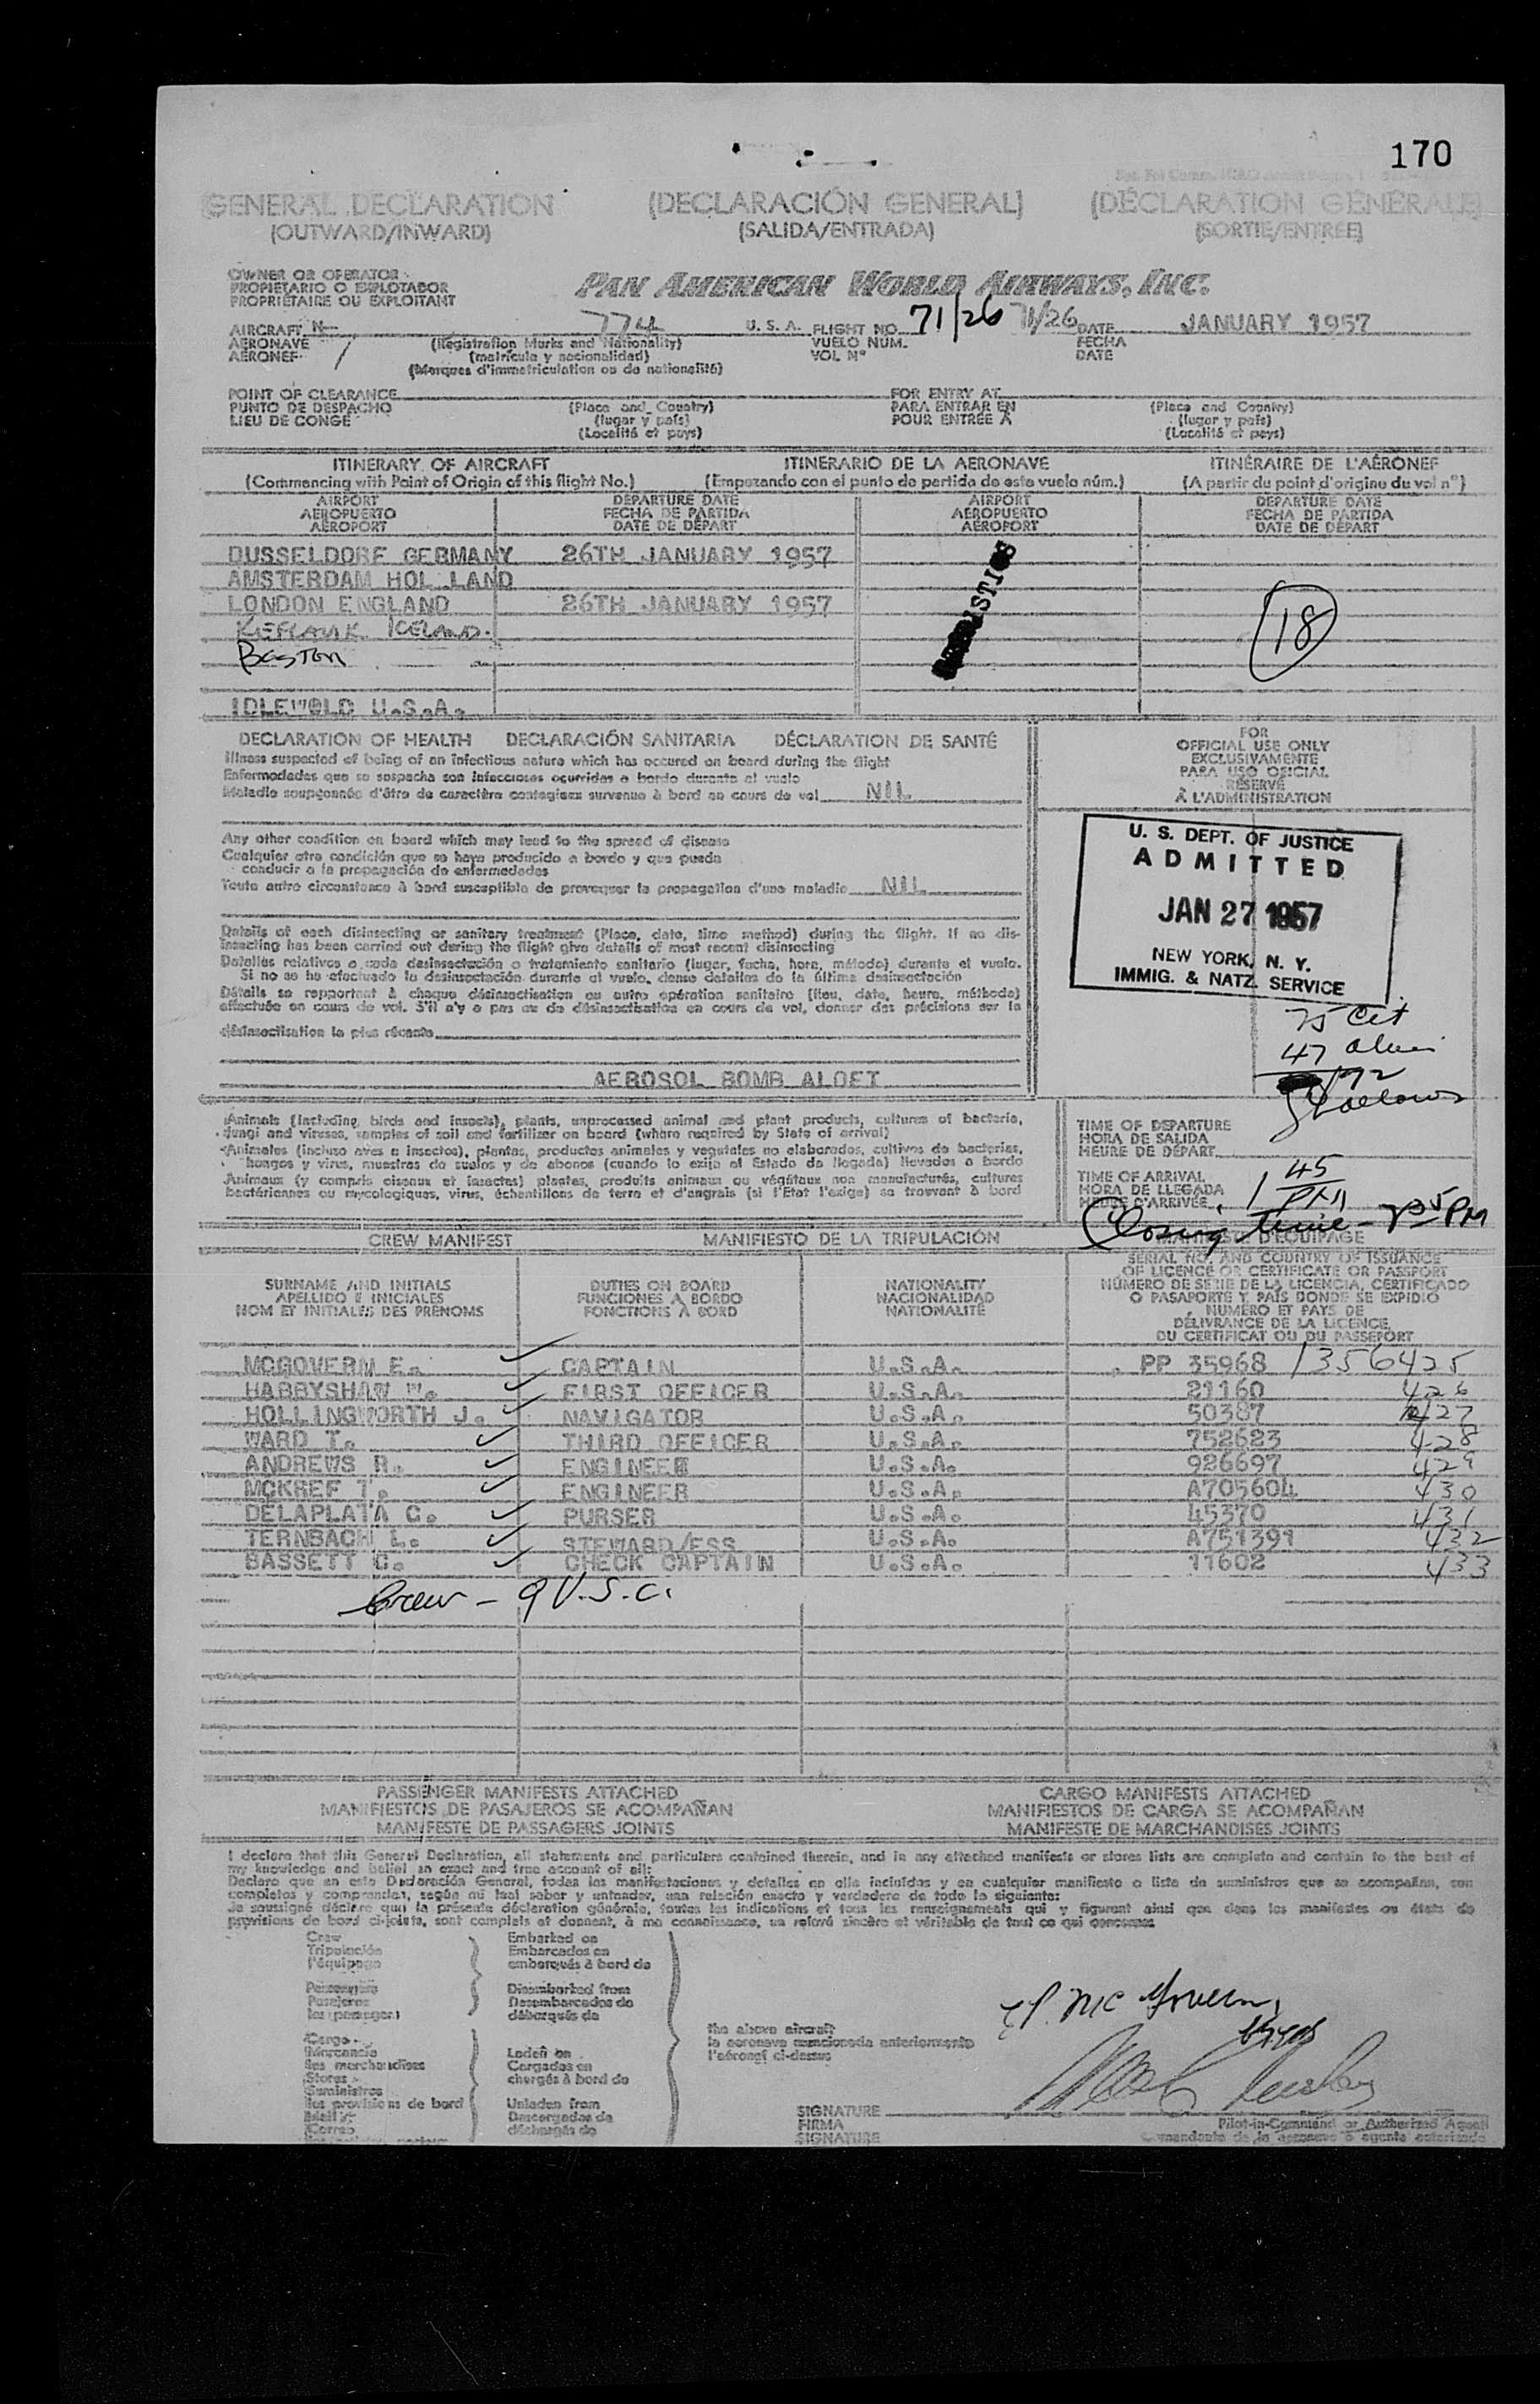 170
GENERAL DECLARATION (DECLARACIÓN GENERAL) (DÉCLARATION GÉNÉRALE)
(OUTWARD/INWARD) (SALIDA/ENTRADA) (SORTIE/ENTRÉE)
OWNER OR OPERATOR
PROPIETARIO O EXPLOTADOR
PROPRIÉTAIRE OU EXPLOITANT
PAN AMERICAN WORLD AIRWAYS, INC.
AIRCRAFT N 774 U. S. A. FLIGHT NO. 71/26 71/26 DATE JANUARY 1957
AERONAVE (Registration Marks and Nationality) VUELO NÚM. FECHA
AÉRONEF (matrícula y nacionalidad) VOL Nº DATE
(Marques d'immatriculation ou de nationalité)
POINT OF CLEARANCE FOR ENTRY AT
PUNTO DE DESPACHO (Place and Country) PARA ENTRAR EN (Place and Country)
LIEU DE CONGÉ (lugar y país) POUR ENTRÉE À (lugar y país)
(Localité et pays) (Localité et pays)
ITINERARY OF AIRCRAFT ITINERARIO DE LA AERONAVE ITINÉRAIRE DE L'AÉRONEF
(Commencing with Point of Origin of this flight No.) (Empezando con el punto de partida de este vuelo núm.) (A partir du point d'origine du vol nº)
AIRPORT DEPARTURE DATE AIRPORT DEPARTURE DATE
AEROPUERTO FECHA DE PARTIDA AEROPUERTO FECHA DE PARTIDA
AÉROPORT DATE DE DÉPART AÉROPORT DATE DE DÉPART
DUSSELDORF GERMANY 26TH JANUARY 1957
AMSTERDAM HOL LAND
LONDON ENGLAND 26TH JANUARY 1957
KEFLAVIK ICELAND.
BOSTON
18
IDLEWOLD U.S.A.
DECLARATION OF HEALTH DECLARACIÓN SANITARIA DÉCLARATION DE SANTÉ
Illness suspected of being of an infectious nature which has occured on board during the flight
Enfermedades que se sospecha son infecciosas ocurridas a bordo durante el vuelo
Maladie soupçonnée d'être de caractère contagieux survenue à bord au cours de vol NIL
Any other condition on board which may lead to the spread of disease
Cualquier otra condición que se haya producido a bordo y que pueda
conducir a la propagación de enfermedades
Toute autre circonstance à bord susceptible de provoquer la propagation d'une maladie NIL
Details of each disinsecting or sanitary treatment (Place, date, time method) during the flight. If no dis-
insecting has been carried out during the flight give details of most recent disinsecting
Detalles relativos a cada desinsectación o tratamiento sanitario (lugar, fecha, hora, método) durante el vuelo.
Si no se ha efectuado la desinsectación durante el vuelo, dense detalles de la última desinsectación
Détails se rapportant à chaque désinsectisation ou autre opération sanitaire (lieu, date, heure, méthode)
effectuée en cours de vol. S'il n'y a pas eu de désinsectisation en cours de vol, donner des précisions sur la
désinsectisation la plus récente
AEROSOL BOMB ALOFT
FOR
OFFICIAL USE ONLY
EXCLUSIVAMENTE
PARA USO OFICIAL
RÉSERVÉ
À L'ADMINISTRATION
U. S. DEPT. OF JUSTICE
ADMITTED
JAN 27 1957
NEW YORK, N. Y.
IMMIG. & NATZ. SERVICE
25 Cit
47
72
Animals (including birds and insects), plants, unprocessed animal and plant products, cultures of bacteria,
fungi and viruses, samples of soil and fertilizer on board (where required by State of arrival)
Animales (incluso aves e insectos), plantas, productos animales y vegetales no elaborados, cultivos de bacterias,
hongos y virus, muestras de suelos y de abonos (cuando lo exija el Estado de llegada) llevados a bordo
Animaux (y compris oiseaux et insectes) plantes, produits animaux ou végétaux non manufacturés, cultures
bactériennes ou mycologiques, virus, échantillons de terre et d'angrais (si l'Etat l'exige) se trouvant à bord
TIME OF DEPARTURE
HORA DE SALIDA
HEURE DE DÉPART
TIME OF ARRIVAL
HORA DE LLEGADA
HEURE D'ARRIVÉE 1 45 PM
Closing time - PM
CREW MANIFEST MANIFIESTO DE LA TRIPULACIÓN MANIFESTE D'ÉQUIPAGE
SURNAME AND INITIALS DUTIES ON BOARD NATIONALITY SERIAL NO. AND COUNTRY OF ISSUANCE
APELLIDO E INICIALES FUNCIONES A BORDO NACIONALIDAD OF LICENCE OR CERTIFICATE OR PASSPORT
NOM ET INITIALES DES PRÉNOMS FONCTIONS À BORD NATIONALITÉ NÚMERO DE SERIE DE LA LICENCIA, CERTIFICADO
O PASAPORTE Y PAÍS DONDE SE EXPIDIÓ
NUMÉRO ET PAYS DE
DÉLIVRANCE DE LA LICENCE,
DU CERTIFICAT OU DU PASSEPORT
MCGOVERN E. CAPTAIN U.S.A. PP 35968 1356425
HABBYSHAW W. FIRST OFFICER U.S.A. 21160 426
HOLLINGWORTH J. NAVIGATOR U.S.A. 50387 427
WARD T. THIRD OFFICER U.S.A. 752623 428
ANDREWS R. ENGINEER U.S.A. 926697 429
MCKREF T. ENGINEER U.S.A. A705604 430
DELAPLATA C. PURSER U.S.A. 45370 431
TERNBACH L. STEWARD/ESS U.S.A. A751391 432
BASSETT C. CHECK CAPTAIN U.S.A. 11602 433
Crew - 9 U.S.C.
PASSENGER MANIFESTS ATTACHED CARGO MANIFESTS ATTACHED
MANIFIESTOS DE PASAJEROS SE ACOMPAÑAN MANIFIESTOS DE CARGA SE ACOMPAÑAN
MANIFESTE DE PASSAGERS JOINTS MANIFESTE DE MARCHANDISES JOINTS
I declare that this General Declaration, all statements and particulars contained therein, and in any attached manifests or stores lists are complete and contain to the best of
my knowledge and belief an exact and true account of all:
Declaro que en esta Declaración General, todas las manifestaciones y detalles en ella incluídas y en cualquier manifiesto o lista de suministros que se acompañan, son
completos y comprenden, según mi leal saber y entender, una relación exacta y verdadera de todo lo siguiente:
Je soussigné déclare que la présente déclaration générale, toutes les indications et tous les renseignements qui y figurent ainsi que dans les manifestes ou états de
provisions de bord ci-joints, sont complets et donnent, à ma connaissance, un relevé sincère et véritable de tout ce qui concerne
Crew Embarked on
Tripulación Embarcados en
l'équipage embarqués à bord de
Passengers Disembarked from
Pasajeros Desembarcados de
les passagers débarqués de
the above aircraft
la aeronave mencionada anteriormente
l'aéronef ci-dessus
Cargo
Mercancía Laden on
les marchandises Cargados en
Stores chargés à bord de
Suministros
les provisions de bord Unladen from
Mail Descargados de
Correo déchargés de
E. McGovern
SIGNATURE Pilot-in-Command or Authorized Agent
FIRMA Comandante de la aeronave o agente autorizado
SIGNATURE